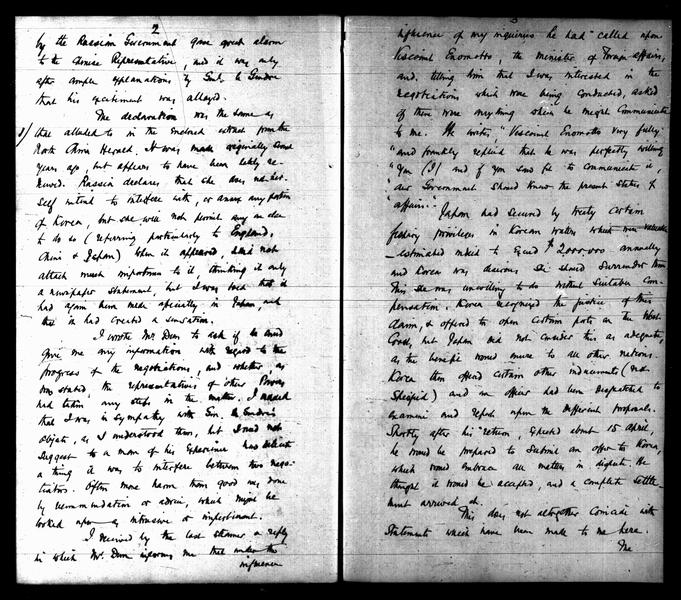 2
by the Russian Government gave great alarm
to the Chinese Representative, and it was only
after ample explanations by Genl. Le Gendre
that his excitement was allayed.
The declaration was the same as
that alluded to in the enclosed extract from the
North China Herald. It was made originally some
years ago, but appears to have been lately re-
newed. Russia declares that she does not her-
self intend to interfere with, or annex any portion
of Korea, but she will not permit any one else
to do so (referring particularly to England,
China & Japan) When it appeared, I did not
attach much importance to it, thinking it only
a newspaper statement, but I was told that it
had again been made officially in Japan, and
that it had created a sensation.
I wrote Mr. Dun to ask if he could
give me any information with regard to the
progress of the negotiations, and whether as
was stated, the representatives of other Powers
had taken any steps in the matter. I added
that I was in sympathy with Gen. Le Gendre's
objects, as I understood them, but I would not
suggest to a man of his experience how delicate
a thing it was to interfere between two nego-
tiators. Often more harm than good was done
by recommendation or advice, which might be
looked upon as intrusive or impertinent.
I received by the last steamer a reply
in which Mr. Dun informs me that under the
influence
3
influence of my inquiries he had called upon
Viscount Enomotto, the Minister of Foreign Affairs,
and telling him that I was interested in the
negotiations which were being conducted, asked
if there were anything which he might communicate
to me. He writes, "Viscount Enomotto very fully
"and frankly replied that he was perfectly willing
"you (I) and if you saw fit to communicate it,
"our Government should know the present status of
"affairs."
Japan had secured by treaty certain
fishing privileges in Korean waters which were valuable
—estimated indeed to equal $2,000,000 annually
and Korea was desirous she should surrender them
This she was unwilling to do without suitable com-
pensation. Korea recognized the justice of this
claim, & offered to open certain ports on the West
Coast, but Japan did not consider this as adequate,
as the benefit would inure to all other nations.
Korea then offered certain other inducements (not
specified) and an officer had been despatched to
examine and report upon the different proposals.
Shortly after his return, expected about 15 April,
he would be prepared to submit an offer to Korea,
which would embrace all matters in dispute. He
thought it would be accepted, and a complete settle-
ment arrived at.
This does not altogether coincide with
statements which have been made to me here.
The